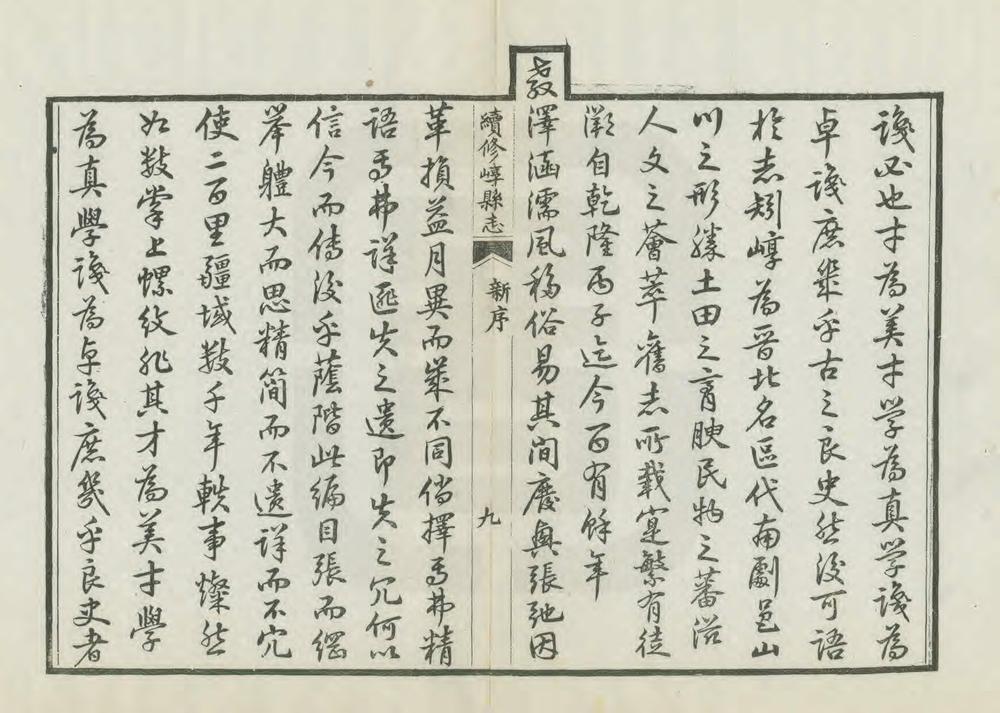 識必也才為美才学為真学識為
卓識庶幾乎古之良史然後可語
於志矧崞為晋北名區代南劇邑山
川之形勝土田之膏腴民物之蕃滋
人文之薈萃舊志所載寔繁有徒
溯自乾隆丙子迄今百有餘年
教澤涵濡風移俗易其间廢興張弛因
續修崞縣志
新序
九
革損益月異而歲不同倘擇焉弗精
語焉弗詳匪失之遺即失之冗何以
信今而傳後乎蔭階此编目張而綱
举軆大而思精简而不遺详而不冗
使二百里疆域数千年軼事燦然
如数掌上螺紋非其才為美才學
為真學識為卓識庶幾乎良史者